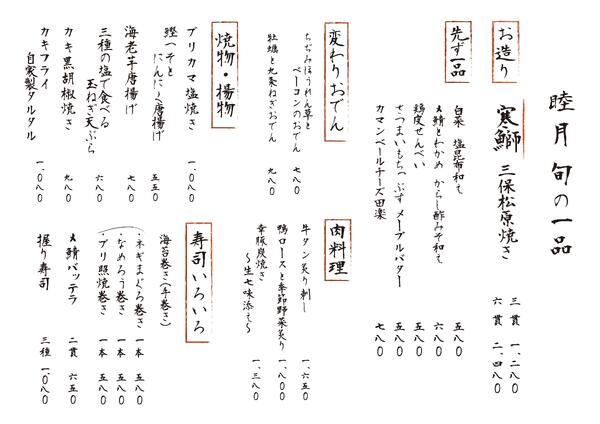 睦月 旬の一品
お造り
寒鰤 三保松原焼き
三貫 一、二八〇
六貫 二、四八〇
先ず一品
白菜 塩昆布和え 五八〇
〆鯖とわかめ からし酢みそ和え 六八〇
鶏皮せんべい 五八〇
さつまいもちっぷす メープルバター 五八〇
カマンベールチーズ田楽 七八〇
変わりおでん
ちぢみほうれん草と
ベーコンのおでん 七八〇
牡蠣と九条ねぎおでん 九八〇
肉料理
牛タン炙り刺し 一、六五〇
鴨ロースと季節野菜炙り 一、八〇〇
幸豚炭焼き
〜生七味添え〜 一、三八〇
焼物・揚物
ブリカマ塩焼き 一、〇八〇
鰹へそと
にんにく唐揚げ 五五〇
海老芋唐揚げ 七八〇
三種の塩で食べる
玉ねぎ天ぷら 六八〇
カキ黒胡椒焼き 九八〇
カキフライ
自家製タルタル 一、〇八〇
寿司いろいろ
海苔巻き(手巻き)
・ネギまぐろ巻き 一本 五八〇
・なめろう巻き 一本 五八〇
・ブリ照焼巻き 一本 五八〇
〆鯖バッテラ 二貫 六五〇
握り寿司 三種 一、〇八〇